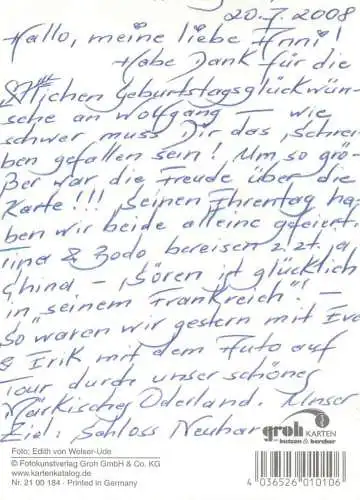 20.7.2008
Hallo, meine liebe Anni!
Habe Dank für die
♡lichen Geburtstagsglückwün-
sche an Wolfgang – wie
schwer muss Dir das Schrei-
ben gefallen sein! Um so grö-
ßer war die Freude über die
Karte!!! Seinen Ehrentag ha-
ben wir beide alleine gefeiert.
Tina & Bodo bereisen z. Zt.
China – "Sören ist glücklich
in "seinem Frankreich" –
So waren wir gestern mit Eva
& Erik mit dem Auto auf
Tour durch unser schönes
Märkische Oderland. Unser
Ziel: Schloss Neuhar
groh KARTEN
mit butzon & bercker
Foto: Edith von Welser-Ude
© Fotokunstverlag Groh GmbH & Co. KG
www.kartenkatalog.de
Nr. 21 00 184 · Printed in Germany
4 036526 010106